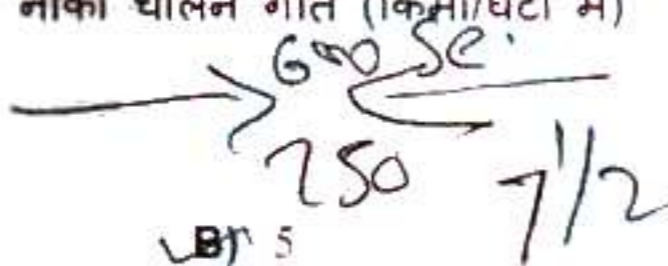 नौका चालन गति (किमी/घंटा में)
600 Se.
750 7 1/2
B) 5